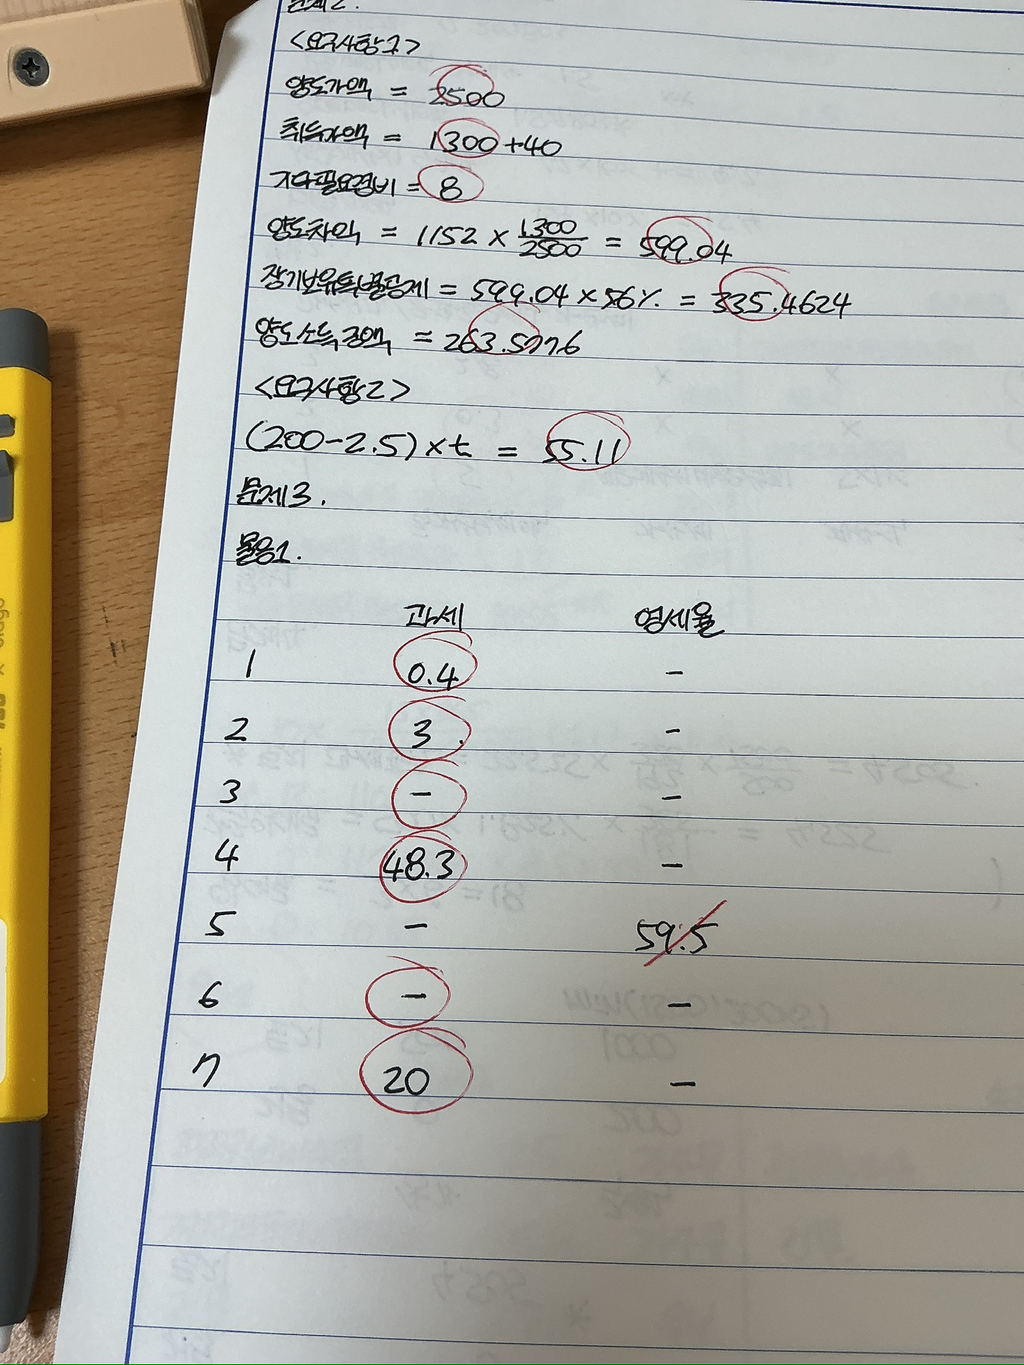 문제2.
<요구사항1>
양도가액 = 2500
취득가액 = 1300+40
기타필요경비 = 8
양도차익 = 1152 × 1300/2500 = 599.04
장기보유특별공제 = 599.04 × 56% = 335.4624
양도소득금액 = 263.5776
<요구사항2>
(200-2.5) × t = 55.11
문제3.
물음1.
과세 영세율
1 0.4 -
2 3 -
3 - -
4 48.3 -
5 - 59.5
6 - -
7 20 -